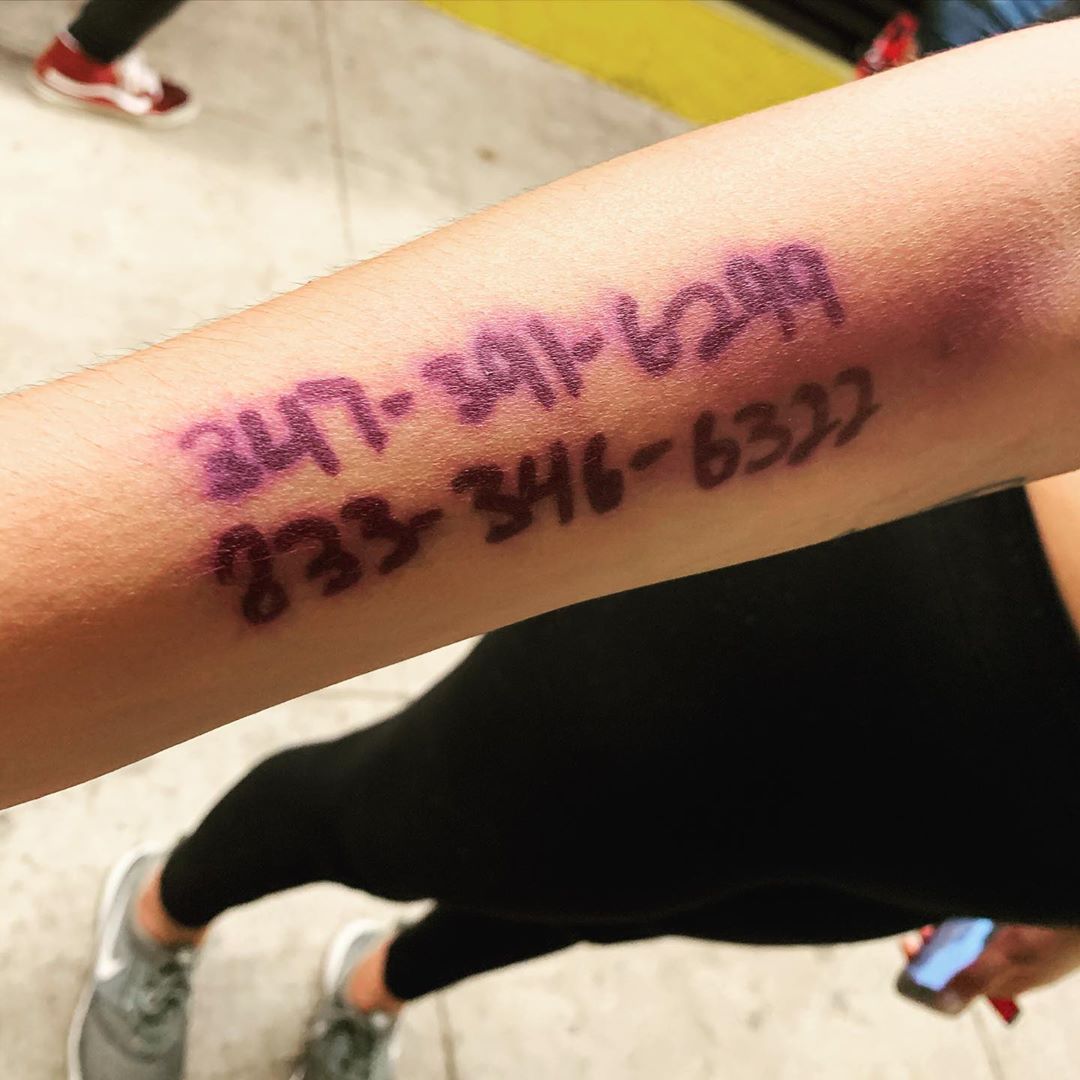 347-391-6299
833-346-6322